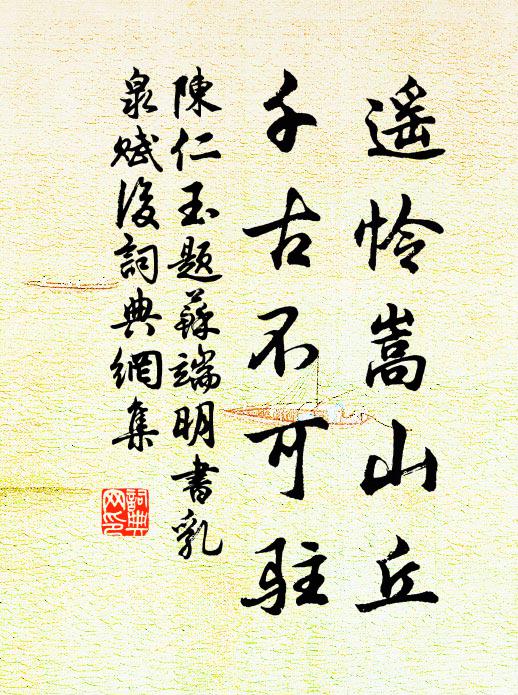 遥怜嵩山丘
千古不可駐
陳仁玉题蘇端明書乳
泉赋後詞典網集
詞典
网印